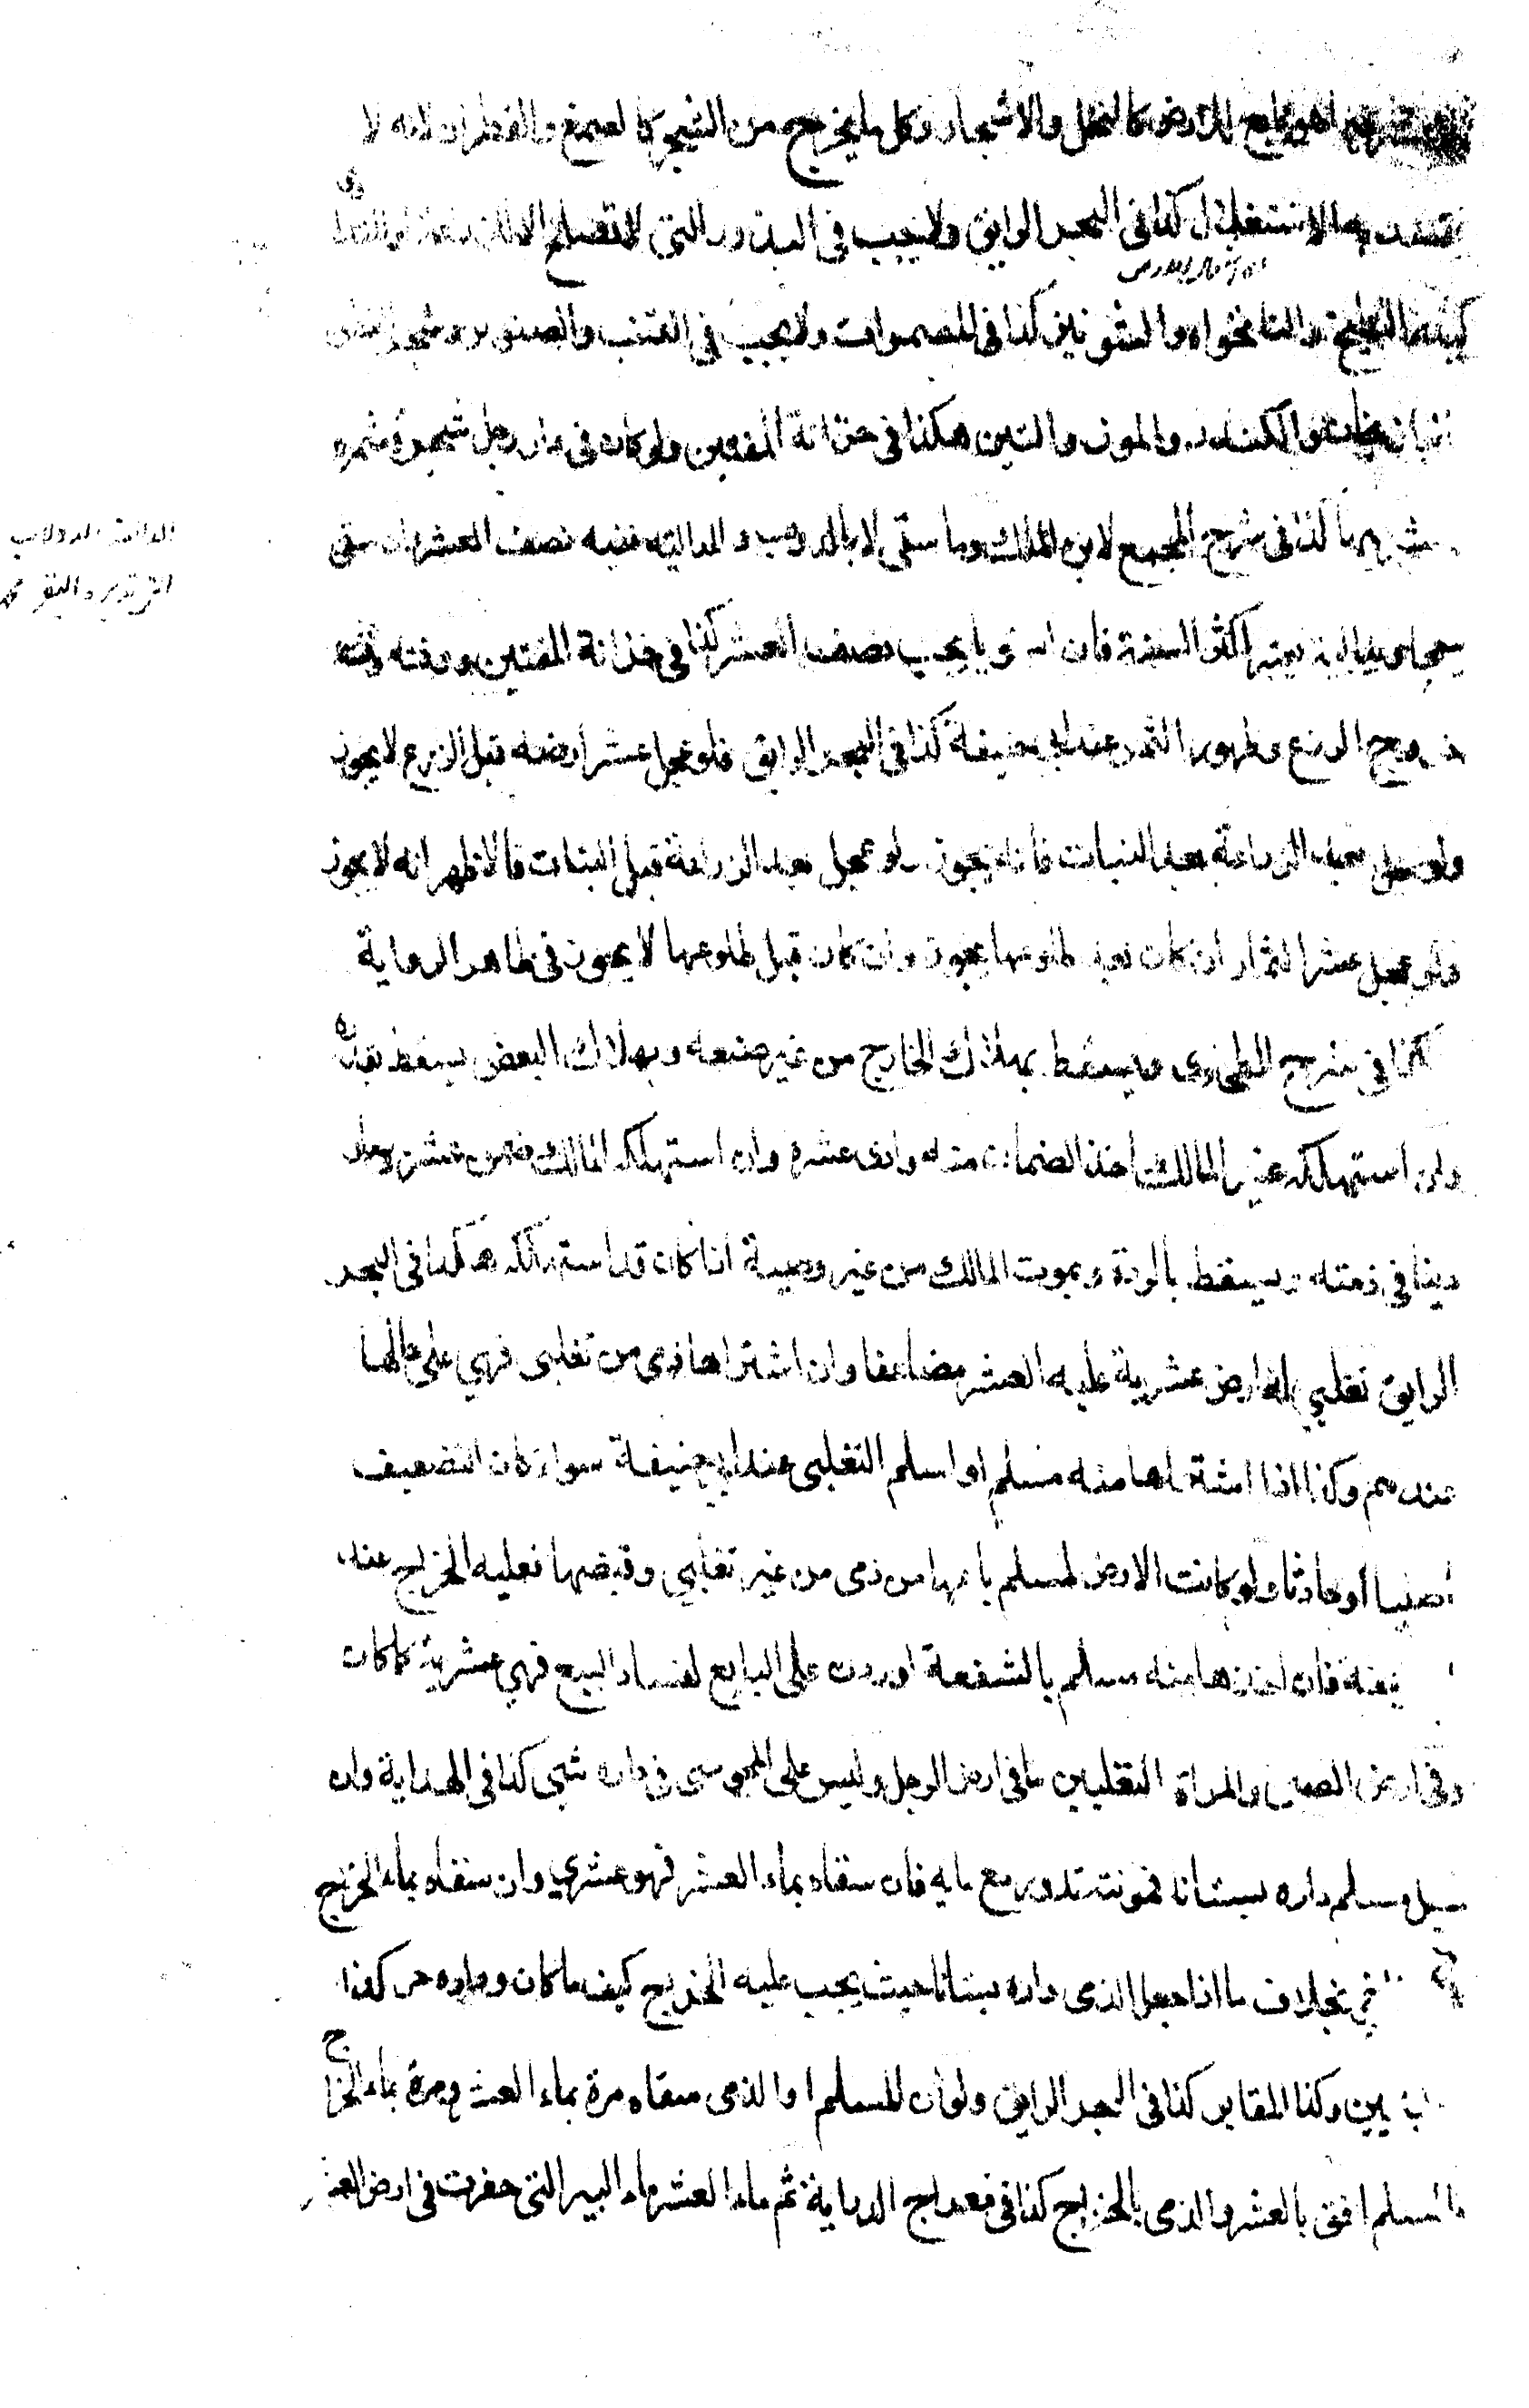 هو تابع للارض كالنخل والاشجار وكل ما يخرج من الشجر كالصمغ والقطران لانه لا
يقصد بها الاستغلال كذا فى البحر الرايق ولا يجب في البذور التي لا تصلح الا للزراعة والتداوى
كبذر البطيخ والنانخواه والشونيز كذا فى المضمرات ولا يجب في القنب والصنوبر وشجر القطن
والباذنجان والكندر والموز والتين هكذا فى خزانة المفتين ولو كان فى دار رجل شجرة مثمرة
لا عشر فيها كذا فى شرح المجمع لابن الملك وما سقى بالدولاب والدالية ففيه نصف العشر وان سقى
سيحا وبدالية يعتبر اكثر السنة فان استويا يجب نصف العشر كذا في خزانة المفتين ووقته وقت
خروج الزرع وظهور الثمر عند ابي حنيفة كذا فى البحر الرايق فلو عجل عشر ارضه قبل الزرع لا يجوز
ولو عجل بعد الزراعة بعد النبات فانه يجوز ولو عجل بعد الزراعة قبل النبات فالاظهر انه لا يجوز
ولو عجل عشر الثمار ان كان بعد طلوعها يجوز وان كان قبل طلوعها لا يجوز فى ظاهر الرواية
كذا فى شرح الطحاوى ويسقط بهلاك الخارج من غير صنعه وبهلاك البعض يسقط بقدره
وان استهلكه غير المالك اخذ الضمان منه وادى عشره وان استهلكه المالك ضمن عشره وصار
دينا في ذمته ويسقط بالردة وبموت المالك من غير وصية اذا كان قد استهلكه هكذا فى البحر
الرايق تغلبي له ارض عشرية عليه العشر مضاعفا وان اشتراها ذمى من تغلبى فهي على حالها
عندهم وكذا اذا اشتراها منه مسلم او اسلم التغلبى عند ابي حنيفة سواء كان التضعيف
اصليا او حادثا ولو كانت الارض لمسلم باعها من ذمى من غير تغلبي وقبضها فعليه الخراج عند
حنيفة فان اخذها منه مسلم بالشفعة او ردت على البايع لفساد البيع فهي عشرية كما كان
وفى ارض الصبى والمراة التغلبيين ما فى ارض الرجل وليس على المجوسى فى داره شىء كذا فى الهداية وان
جعل مسلم داره بستانا فمونته تدور مع مايه فان سقاه بماء العشر فهو عشري وان سقاه بماء الخراج
بخلاف ما اذا جعل الذمى داره بستانا حيث يجب عليه الخراج كيف ما كان وداره حر كذا
فى التبيين وكذا المقابر كذا فى البحر الرايق ولو ان المسلم او الذمى سقاه مرة بماء العشر ومرة بماء الخراج
فالمسلم افق بالعشر والذمى بالخراج كذا فى معراج الدراية ثم ماء العشر ماء البير التى حفرت فى ارض العشر
الدالية الدولاب
التى تديره البقر